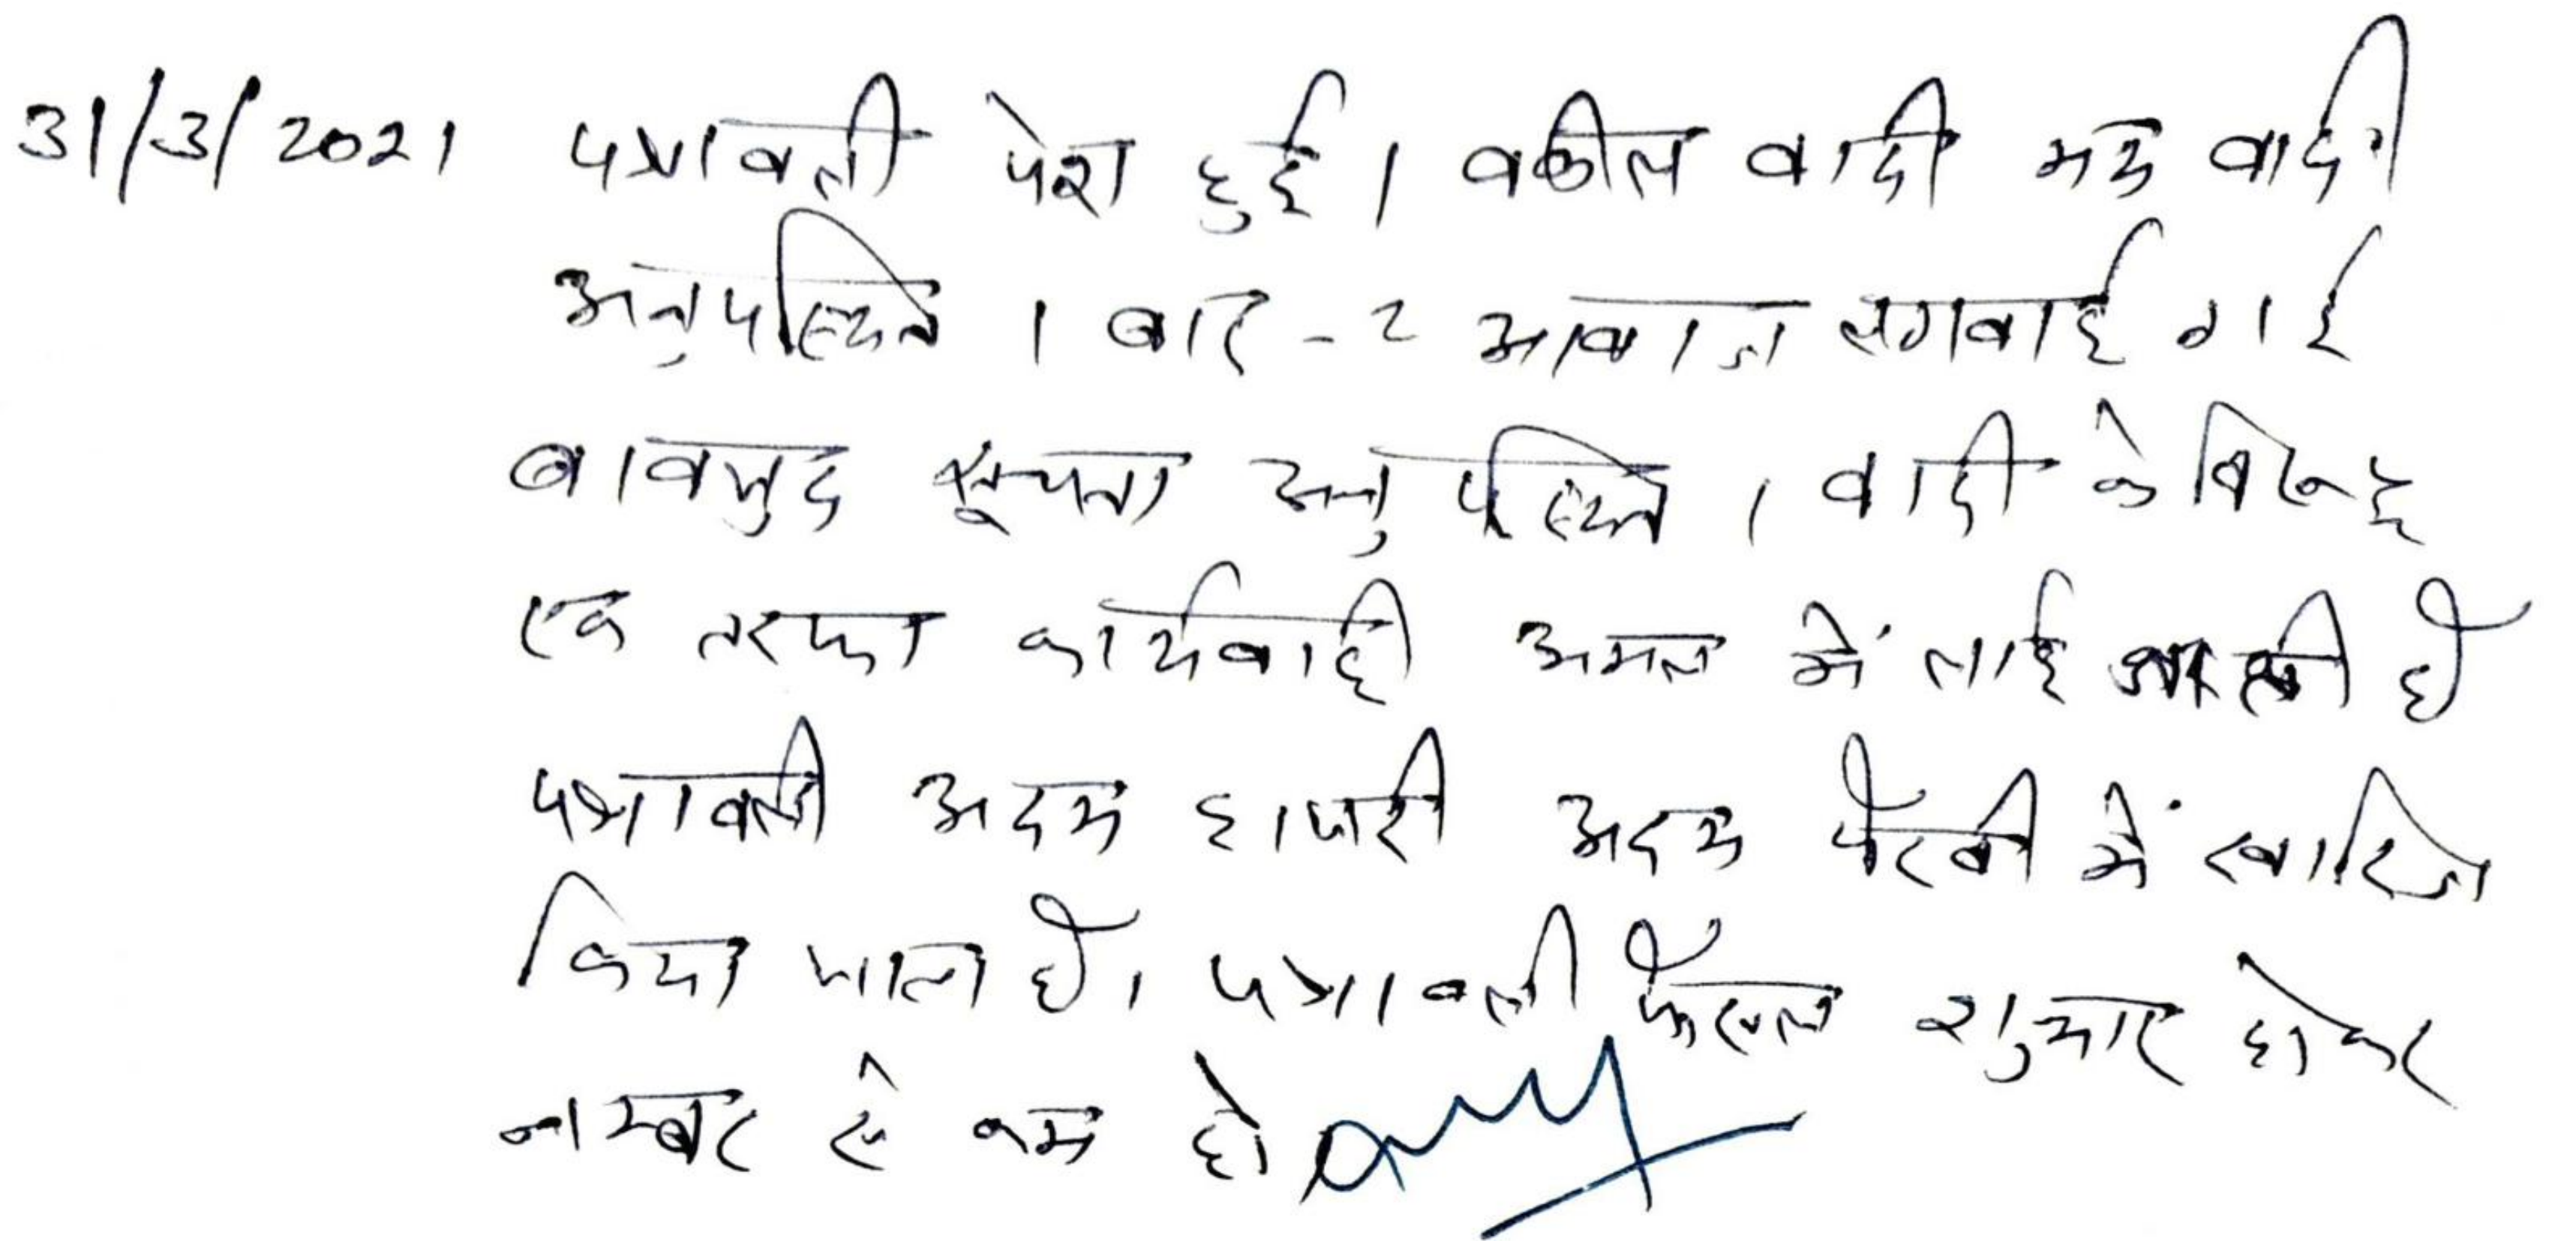 31/3/2021 पत्रावली पेश हुई। वकील वादी मय वादी
अनुपस्थित। बार-2 आवाज लगवाई गई
बावजुद सूचना अनुपस्थित। वादी के विरूद्ध
एक तरफा कार्यवाही अमल में लाई जाती है
पत्रावली अदम हाजरी अदम पैरवी में खारिज
किया जाता है। पत्रावली फैसल शुमार होकर
नम्बर से कम हो